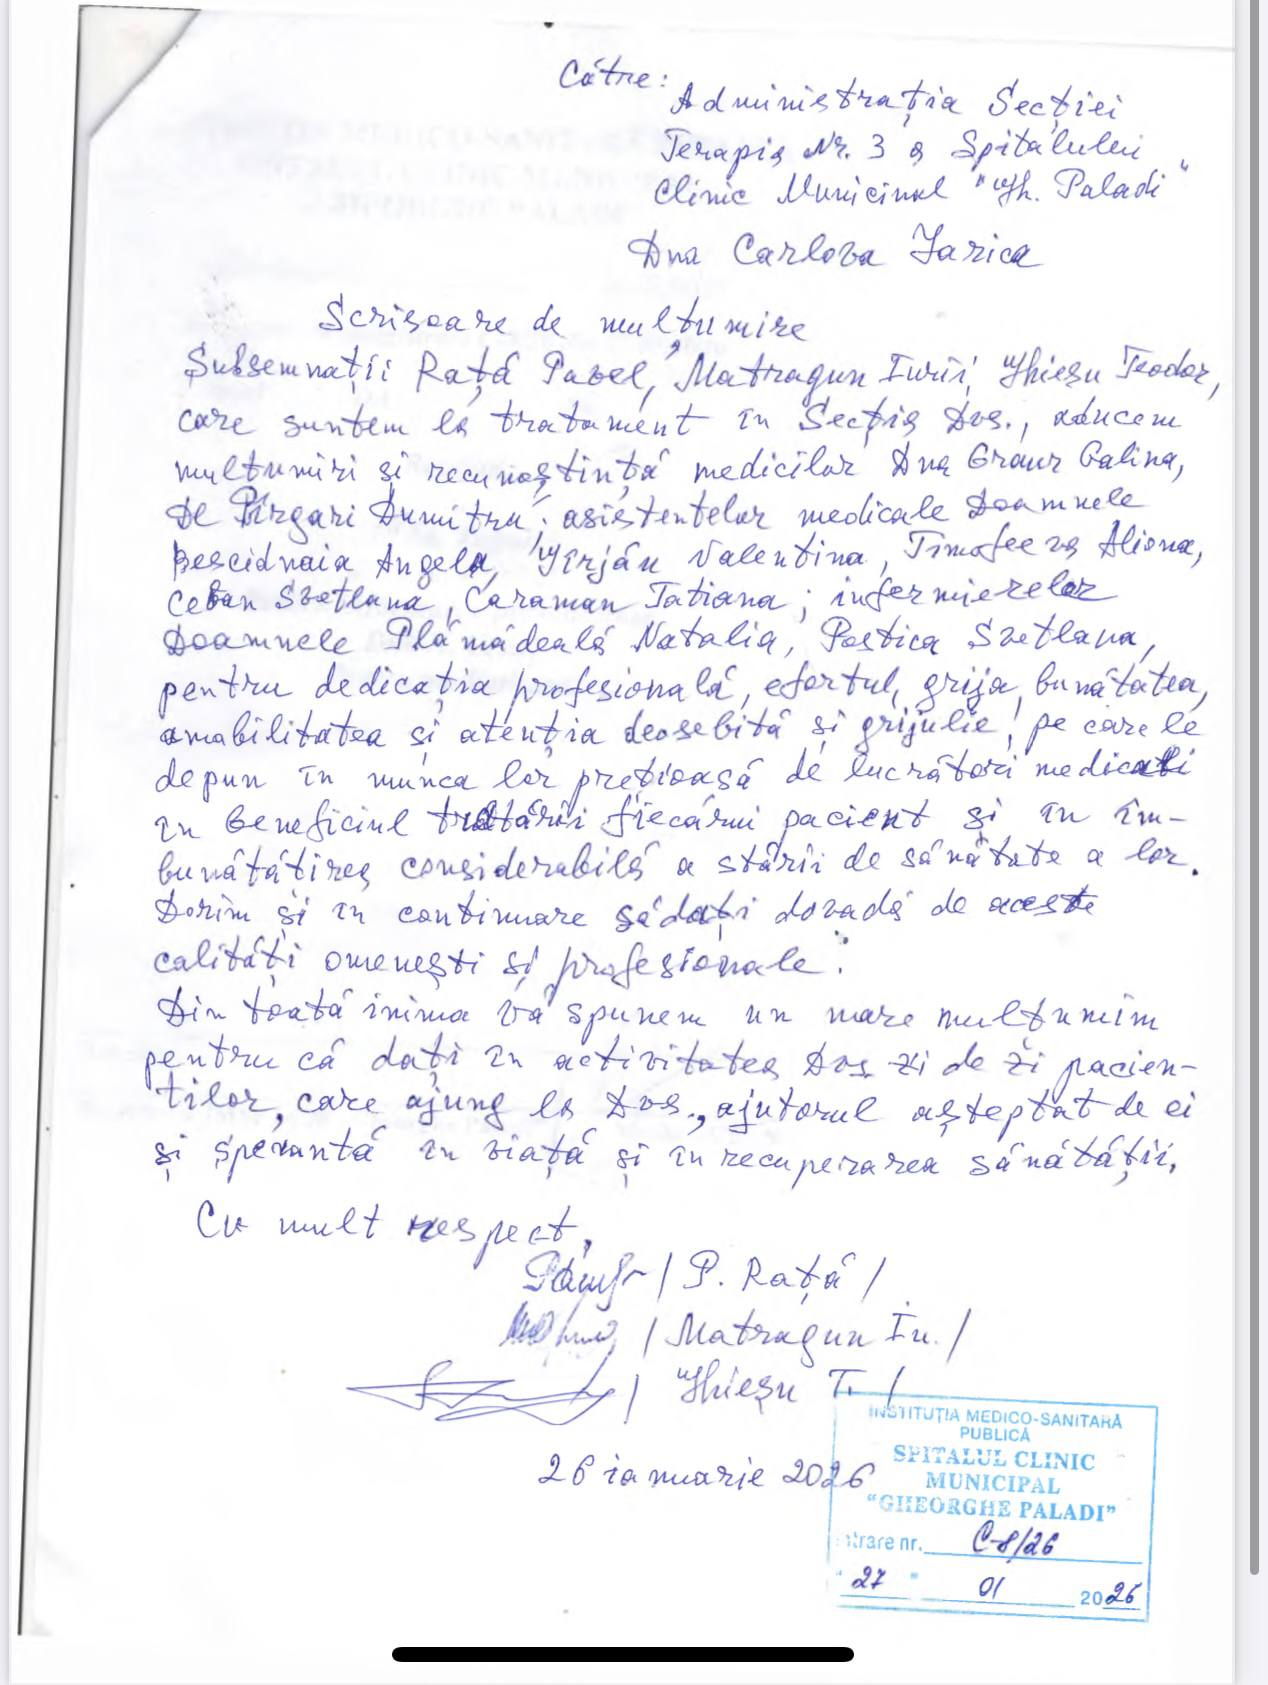 Către:
Administrația Secției
Terapia Nr. 3 a Spitalului
Clinic Municipal "Gh. Paladi"
Dna Carlova Iarica
Scrisoare de mulțumire
Subsemnații Rață Pavel, Matragun Iurii, Ghieșu Teodor,
care suntem la tratament în Secția Dvs., aducem
mulțumiri și recunoștință medicilor Dna Graur Galina,
Dl Pîrgari Dumitru; asistentelor medicale Doamnele
Bescidnaia Angela, Gîrjău Valentina, Timofeeva Aliona,
Ceban Svetlana, Caraman Tatiana; infermierelor
Doamnele Plămădeală Natalia, Postica Svetlana,
pentru dedicația profesională, efortul, grija, bunătatea,
amabilitatea și atenția deosebită și grijulie, pe care le
depun în munca lor prețioasă de lucrători medicali
în beneficiul tratării fiecărui pacient și în îm-
bunătățirea considerabilă a stării de sănătate a lor.
Dorim și în continuare să dați dovadă de aceste
calități omenești și profesionale.
Din toată inima Vă spunem un mare mulțumim
pentru că dați în activitatea Dvs zi de zi pacien-
ților, care ajung la Dvs., ajutorul așteptat de ei
și speranță în viață și în recuperarea sănătății.
Cu mult respect,
/ P. Rață /
/ Matragun Iu. /
/ Ghieșu T. /
26 ianuarie 2026
INSTITUȚIA MEDICO-SANITARĂ
PUBLICĂ
SPITALUL CLINIC
MUNICIPAL
"GHEORGHE PALADI"
trare nr. C-8/26
"27" 01 2026